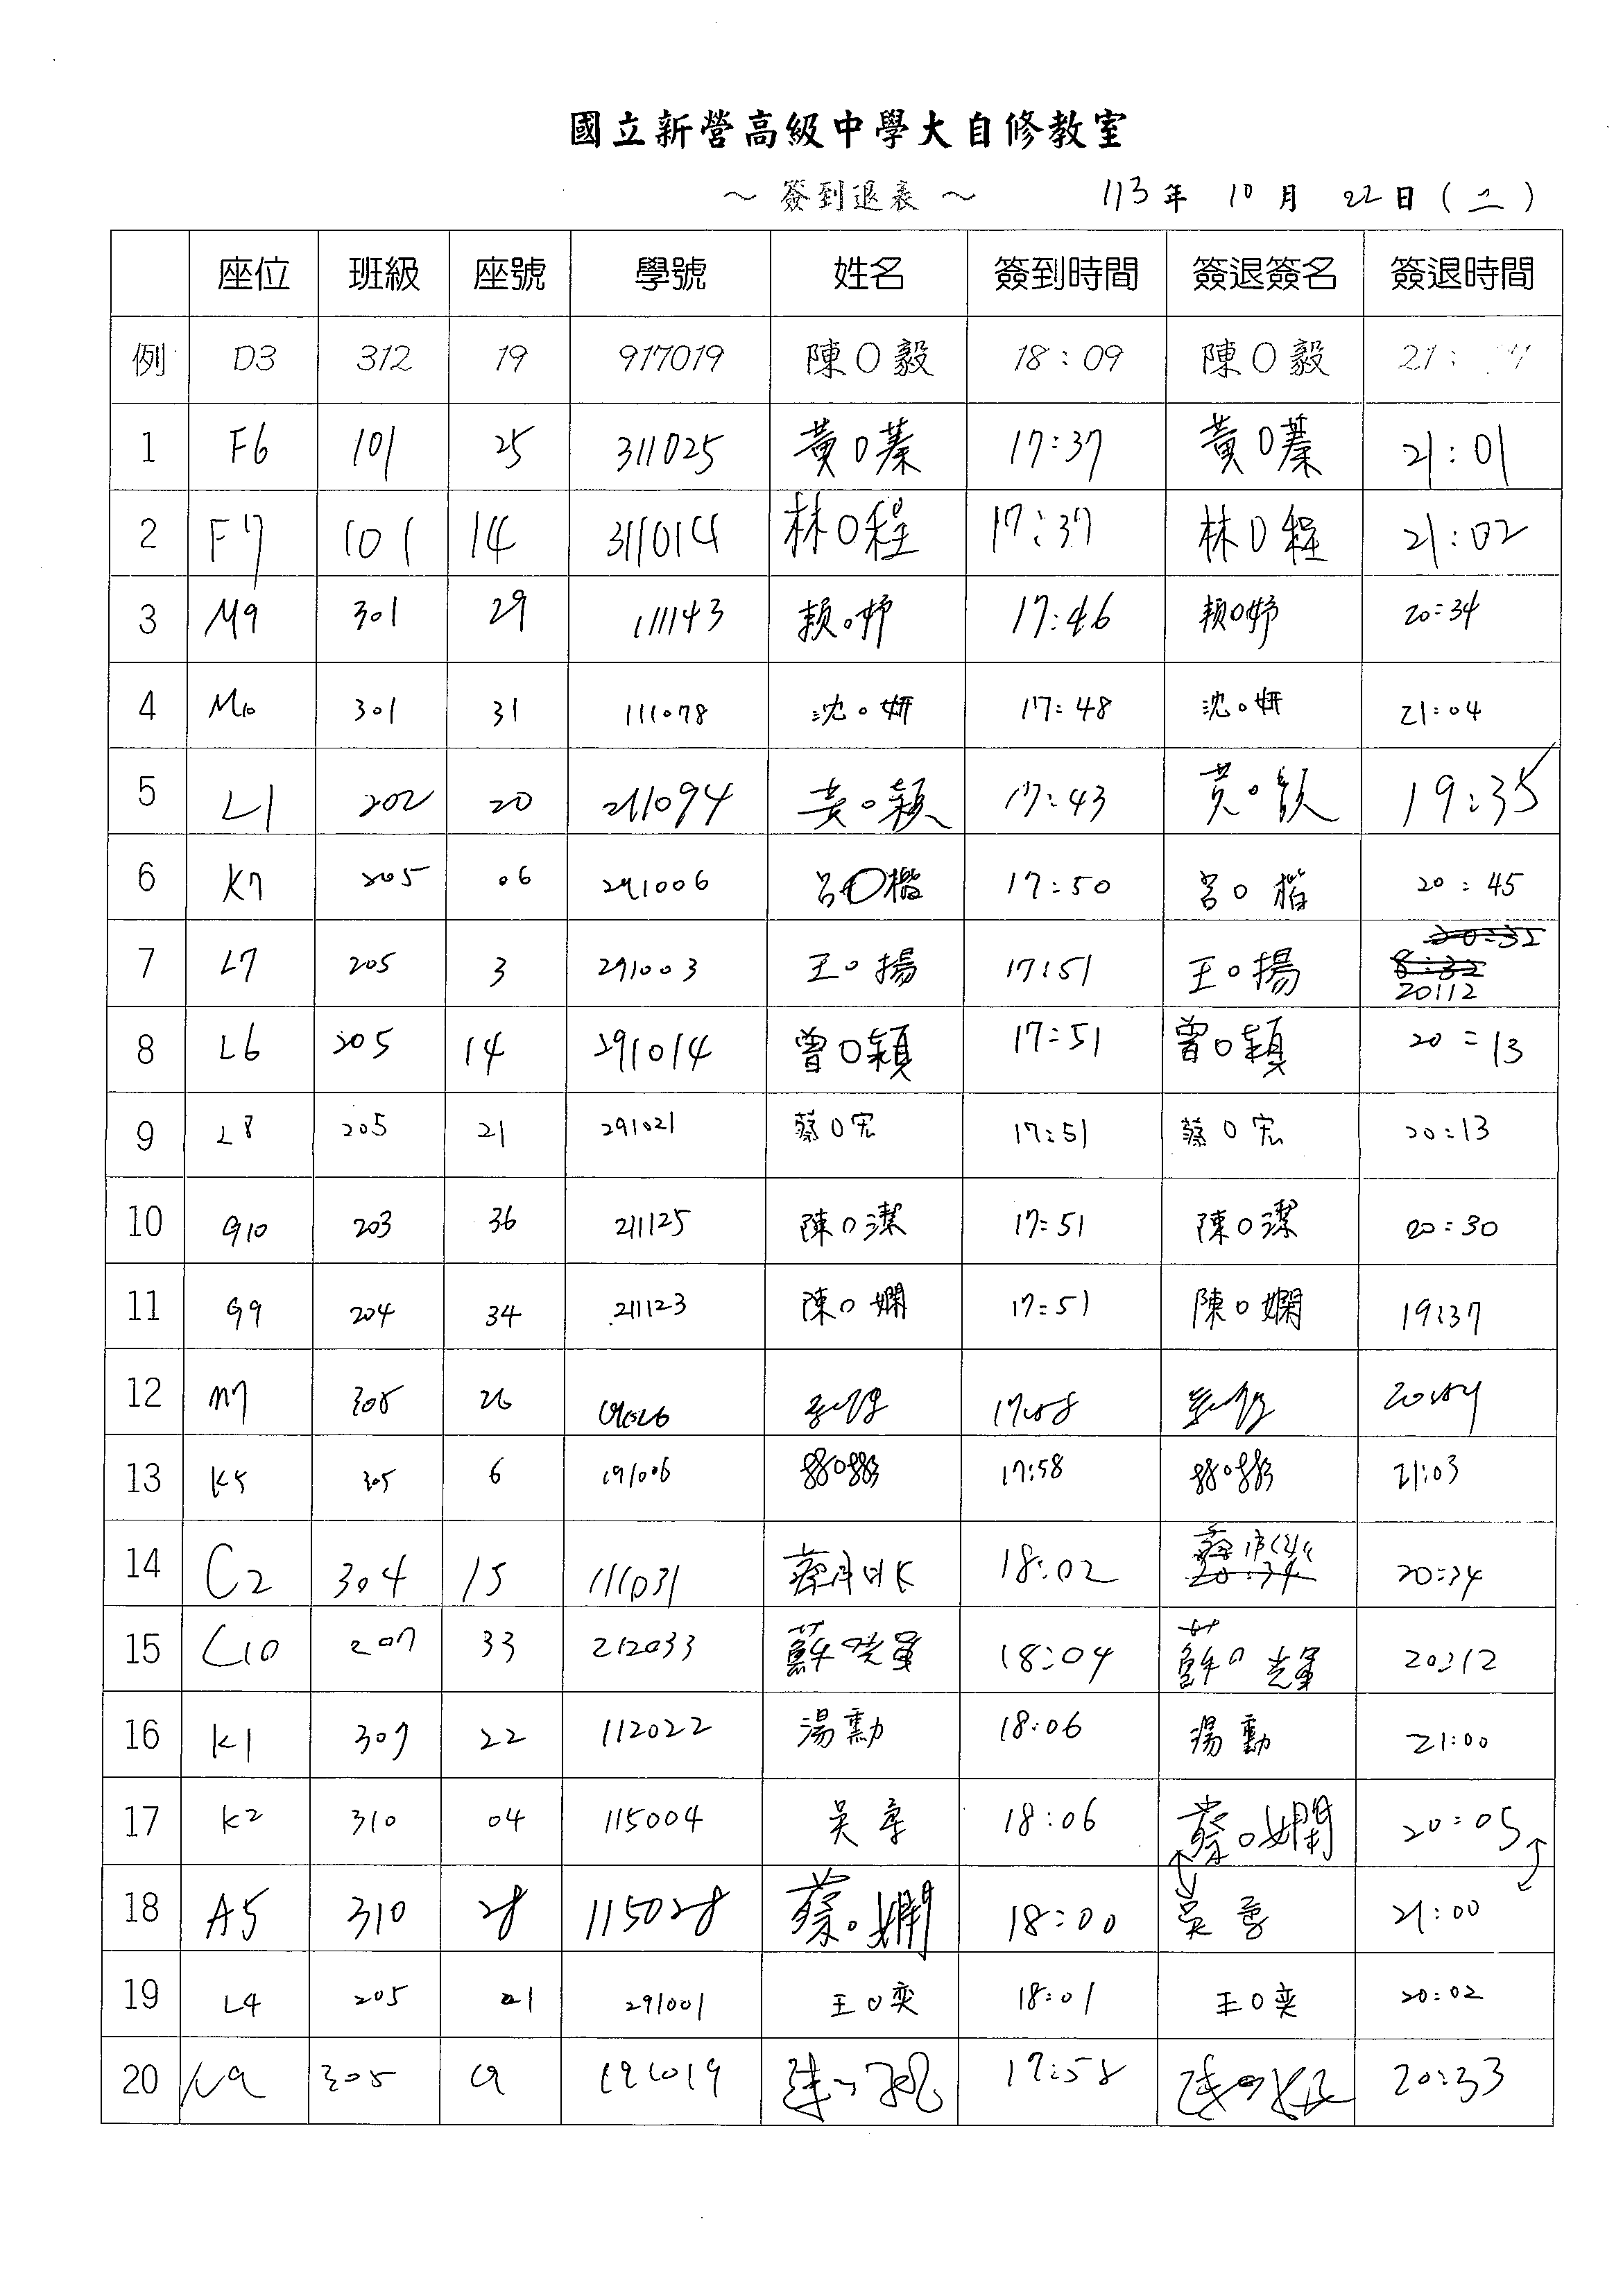 國立新營高級中學大自修教室
～ 簽到退表 ～ 113年 10月 22日(二)
座位 班級 座號 學號 姓名 簽到時間 簽退簽名 簽退時間
例 D3 312 19 917019 陳〇毅 18:09 陳〇毅 21:
1 F6 101 25 311025 黃〇蓁 17:37 黃〇蓁 21:01
2 F7 101 14 311014 林〇程 17:37 林〇程 21:02
3 M9 301 29 111143 賴〇妤 17:46 賴〇妤 20:34
4 M10 301 31 111078 沈〇妍 17:48 沈〇妍 21:04
5 L1 202 20 211094 黃〇穎 17:43 黃〇穎 19:35
6 K7 205 06 291006 呂〇楷 17:50 呂〇楷 20:45
7 L7 205 3 291003 王〇揚 17:51 王〇揚 20:32 8:32 20:12
8 L6 205 14 291014 曾〇穎 17:51 曾〇穎 20:13
9 L8 205 21 291021 蔡〇宏 17:51 蔡〇宏 20:13
10 G10 203 36 211125 陳〇潔 17:51 陳〇潔 20:30
11 G9 204 34 211123 陳〇嫻 17:51 陳〇嫻 19:37
12 M7 305 26 17:58
13 K5 305 6 191006 17:58 21:03
14 C2 304 15 111031 蔡 18:02 蔡 20:34 20:34
15 C10 207 33 212033 蘇 18:04 蘇 20:12
16 K1 307 22 112022 湯勳 18:06 湯勳 21:00
17 K2 310 04 115004 吳 18:06 蔡〇嫻 20:05
18 A5 310 28 115028 蔡〇嫻 18:00 吳 21:00
19 L4 205 01 291001 王〇奕 18:01 王〇奕 20:02
20 K9 305 19 191019 17:58 20:33